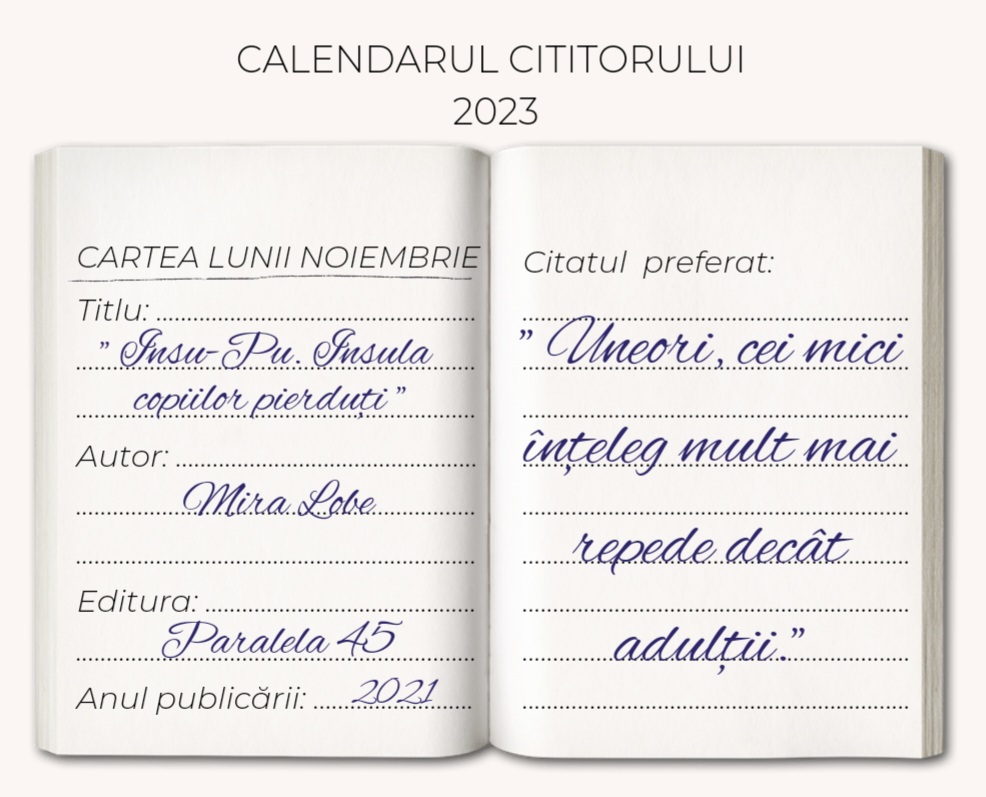 CALENDARUL CITITORULUI
2023
CARTEA LUNII NOIEMBRIE
Titlu:
” Insu-Pu. Insula
copiilor pierduți ”
Autor:
Mira Lobe
Editura:
Paralela 45
Anul publicării: 2021
Citatul preferat:
” Uneori, cei mici
înțeleg mult mai
repede decât
adulții.”